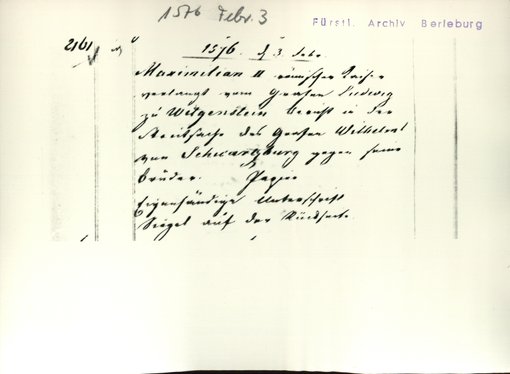 1576 Febr. 3
Fürstl. Archiv Berleburg
2161
1576. d 3. Febr.
Maximilian II römischer Kaiser
verlangt vom Grafen Ludwig
zu Witgenstein Bericht in der
Streitsache des Grafen Wilhelm
von Schwarzburg gegen seine
Brüder. Papier
Eigenhändige Unterschrift
Siegel auf der Rückseite.